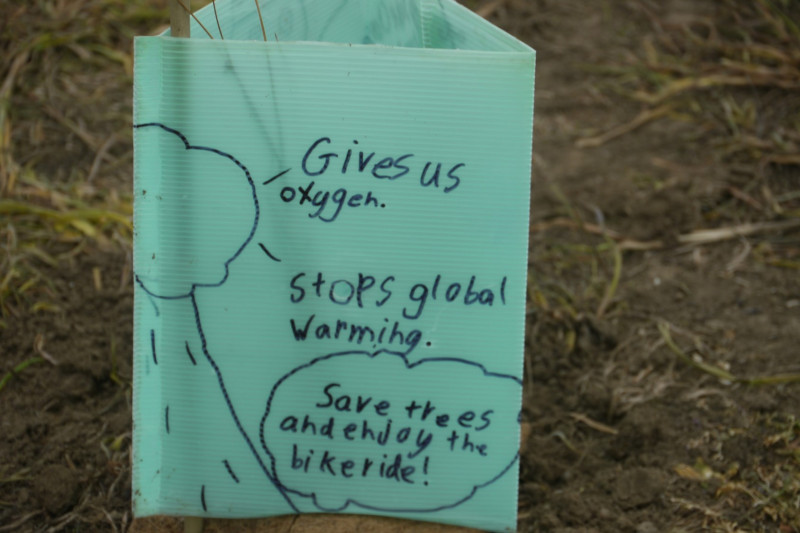 Gives us
oxygen.
Stops global
Warming.
Save trees
and enjoy the
bike ride!